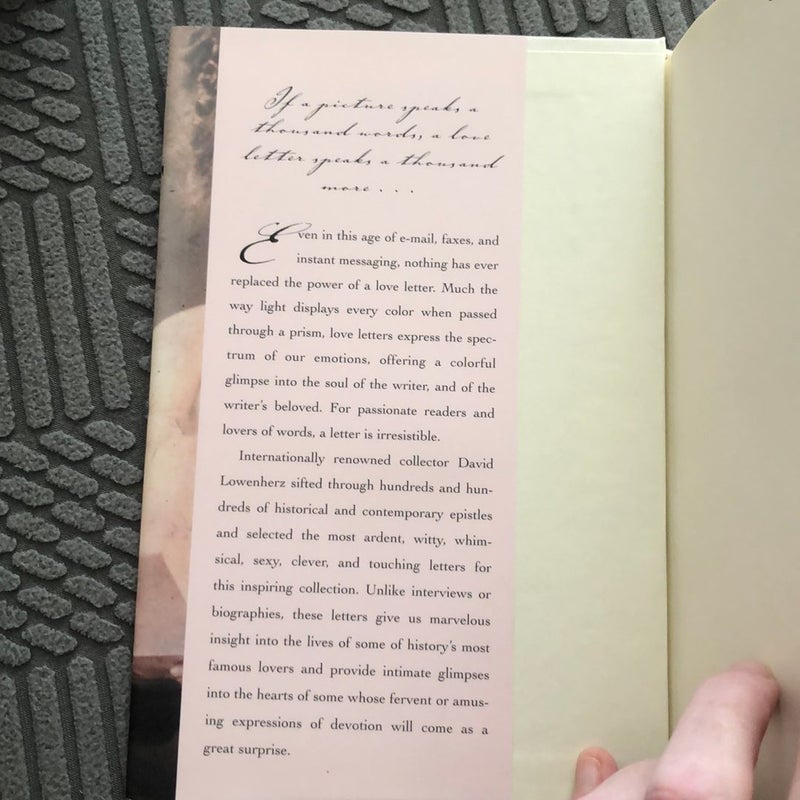 If a picture speaks a
thousand words, a love
letter speaks a thousand
more . . .
Even in this age of e-mail, faxes, and
instant messaging, nothing has ever
replaced the power of a love letter. Much the
way light displays every color when passed
through a prism, love letters express the spec-
trum of our emotions, offering a colorful
glimpse into the soul of the writer, and of the
writer's beloved. For passionate readers and
lovers of words, a letter is irresistible.
Internationally renowned collector David
Lowenherz sifted through hundreds and hun-
dreds of historical and contemporary epistles
and selected the most ardent, witty, whim-
sical, sexy, clever, and touching letters for
this inspiring collection. Unlike interviews or
biographies, these letters give us marvelous
insight into the lives of some of history's most
famous lovers and provide intimate glimpses
into the hearts of some whose fervent or amus-
ing expressions of devotion will come as a
great surprise.